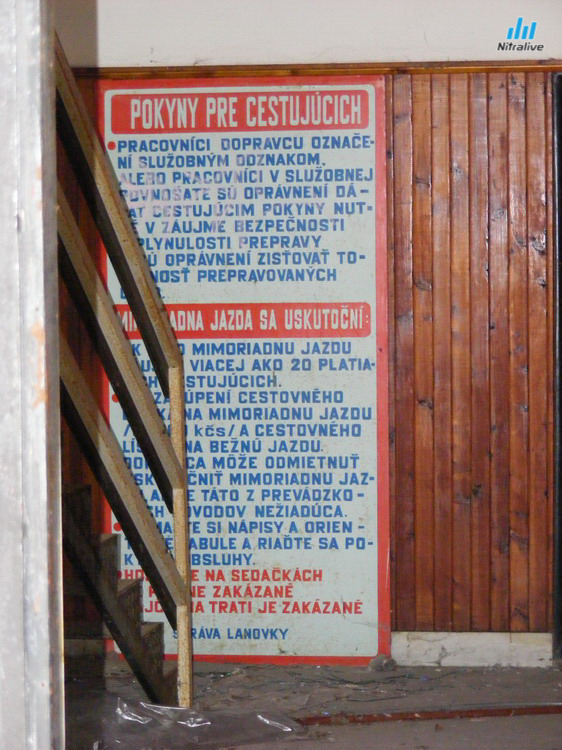 Nitralive
POKYNY PRE CESTUJÚCICH
PRACOVNÍCI DOPRAVCU OZNAČE-
NÍ SLUŽOBNÝM ODZNAKOM,
ALEBO PRACOVNÍCI V SLUŽOBNEJ
ROVNOŠATE SÚ OPRÁVNENÍ DÁ-
CESTUJÚCIM POKYNY NUT-
V ZÁUJME BEZPEČNOSTI
PLYNULOSTI PREPRAVY
OPRÁVNENÍ ZISŤOVAŤ TO-
PREPRAVOVANÝCH
JAZDA SA USKUTOČNÍ:
MIMORIADNU JAZDU
VIACEJ AKO 20 PLATIA-
CESTOVNÉHO
NA MIMORIADNU JAZDU
kčs/ A CESTOVNÉHO
NA BEŽNÚ JAZDU.
MÔŽE ODMIETNUŤ
MIMORIADNU JAZ-
TÁTO Z PREVÁDZKO-
NEŽIADÚCA.
SI NÁPISY A ORIEN-
A RIAĎTE SA PO-
OBSLUHY.
NA SEDAČKÁCH
ZAKÁZANÉ
NA TRATI JE ZAKÁZANÉ
SPRÁVA LANOVKY